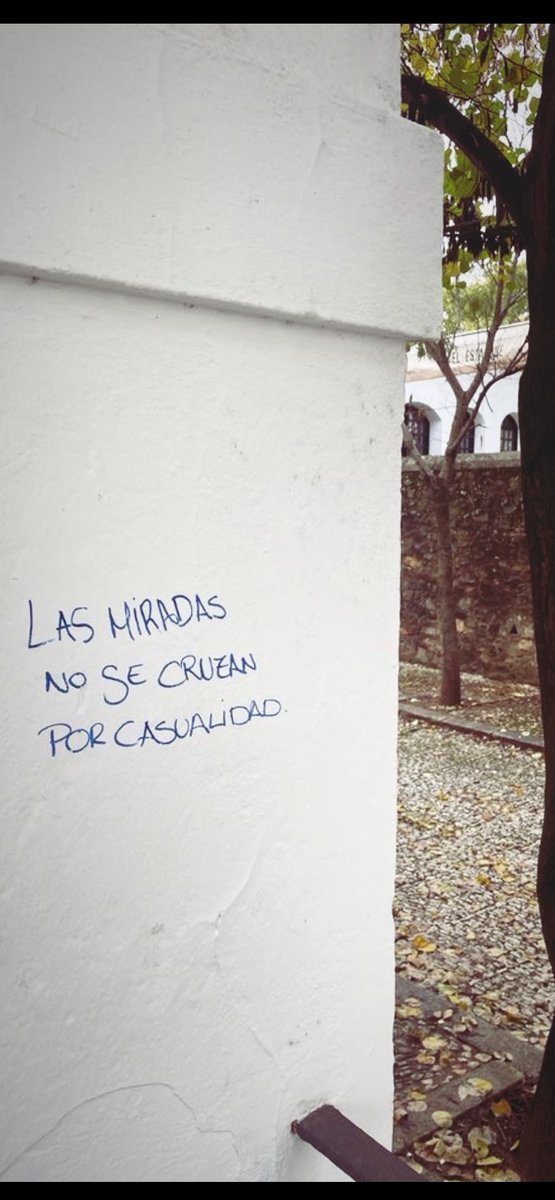 LAS MiRADAS
NO SE CRUZAN
POR CASUALiDAD.
EL